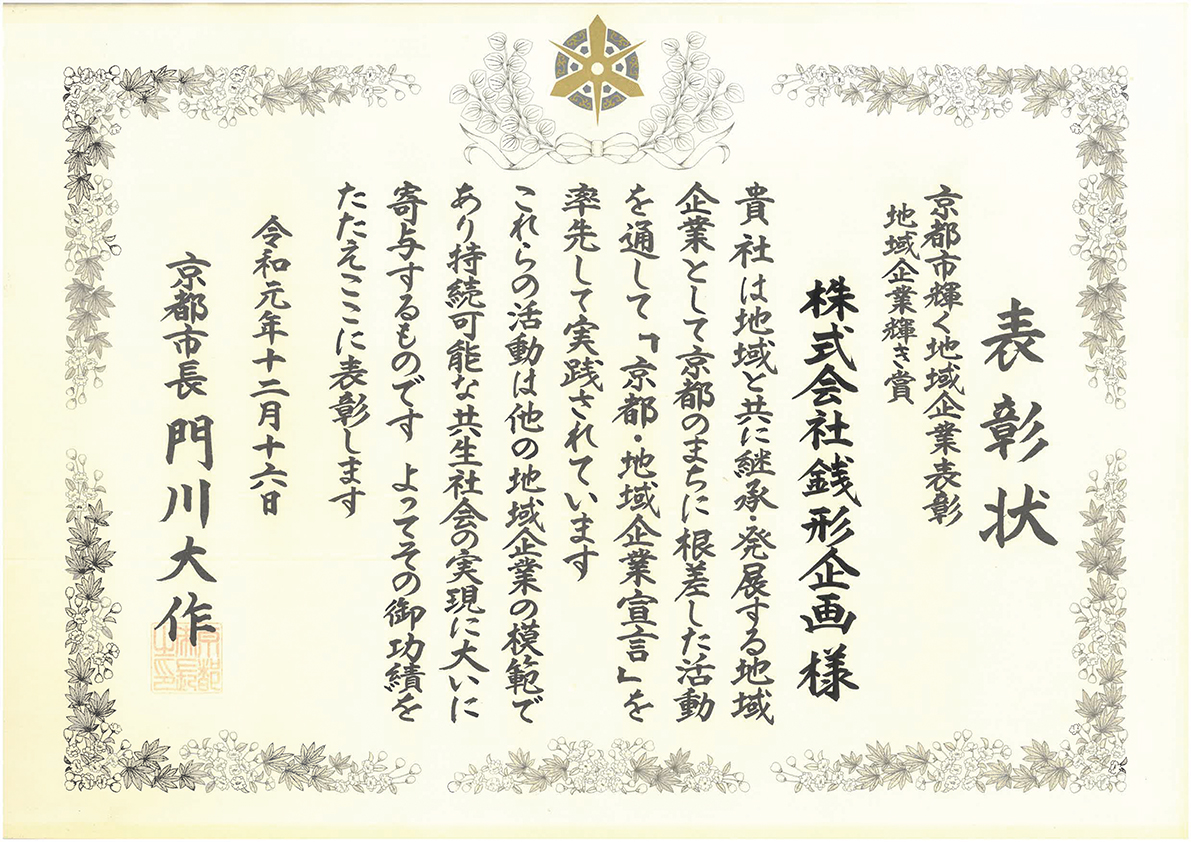 表彰状
京都市輝く地域企業表彰
地域企業輝き賞
株式会社銭形企画様
貴社は地域と共に継承・発展する地域
企業として京都のまちに根差した活動
を通して「京都・地域企業宣言」を
率先して実践されています
これらの活動は他の地域企業の模範で
あり持続可能な共生社会の実現に大いに
寄与するものです よってその御功績を
たたえここに表彰します
令和元年十二月十六日
京都市長 門川大作
京都市長之印